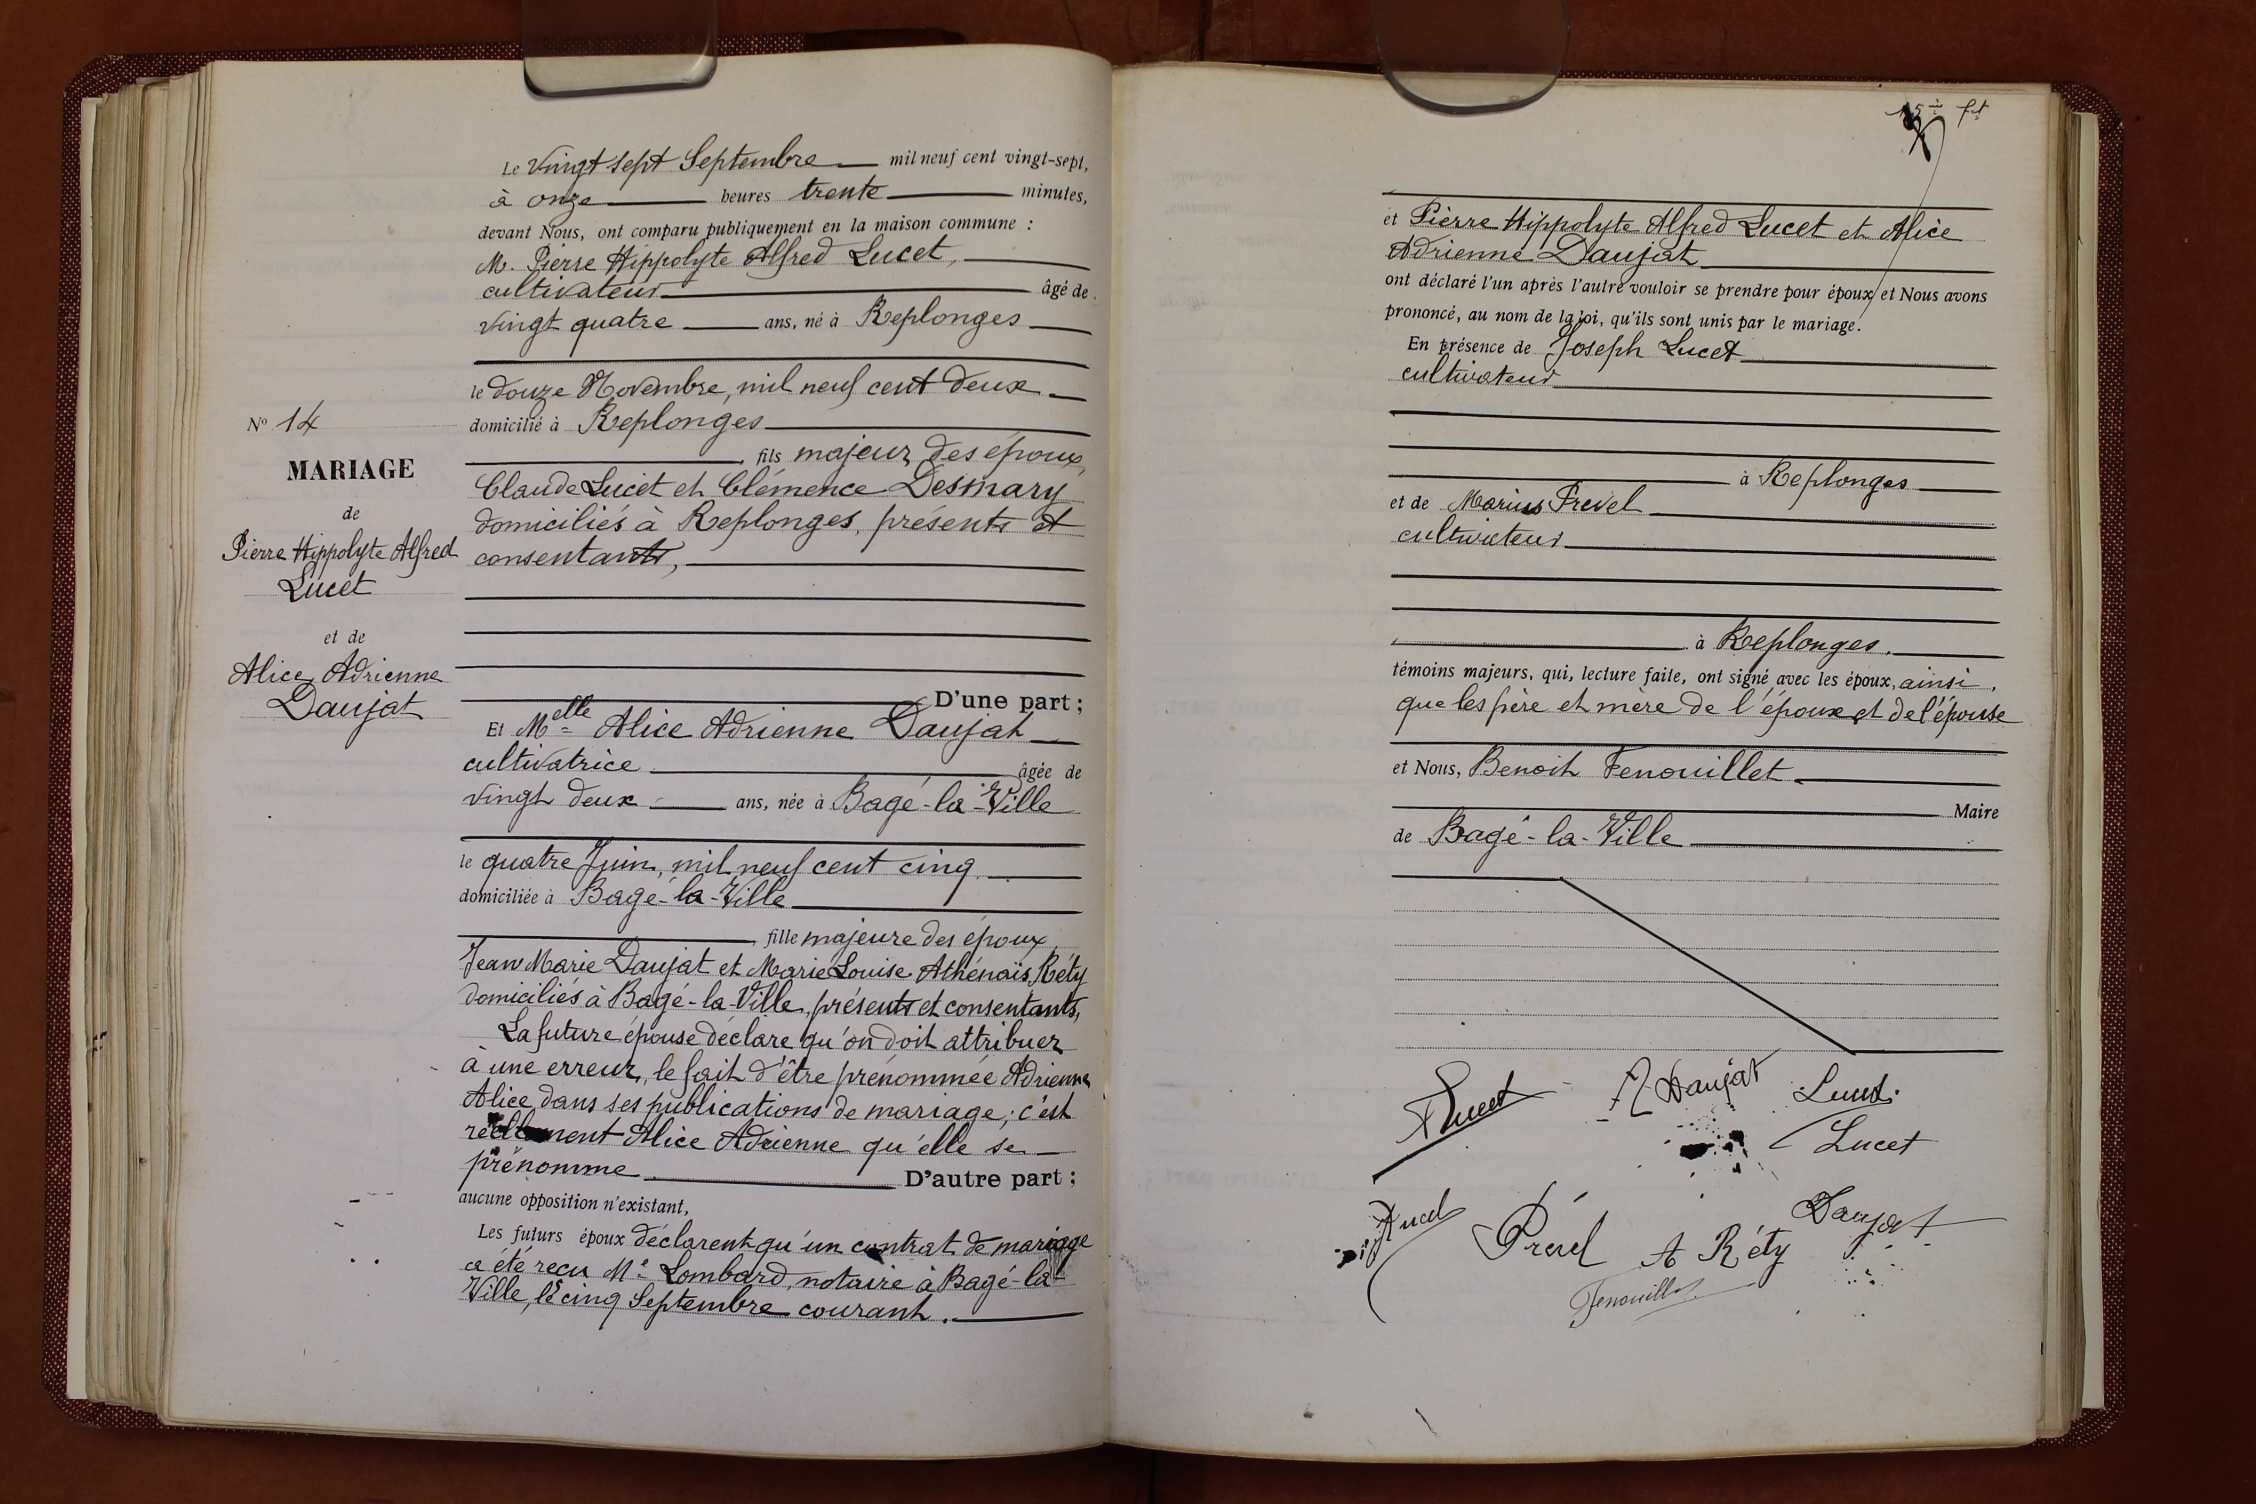 Le vingt sept Septembre mil neuf cent vingt-sept,
à onze heures trente minutes,
devant Nous, ont comparu publiquement en la maison commune :
M. Pierre Hippolyte Alfred Lucet,
cultivateur âgé de
vingt quatre ans, né à Replonges
le douze Novembre, mil neuf cent deux
domicilié à Replonges
, fils majeur des époux,
Claude Lucet et Clémence Desmary
domiciliés à Replonges, présents et
consentants,
D'une part ;
Nº 14
MARIAGE
de
Pierre Hippolyte Alfred
Lucet
et de
Alice Adrienne
Daujat
Et Melle Alice Adrienne Daujat
cultivatrice âgée de
vingt deux ans, née à Bagé-la-Ville
le quatre Juin, mil neuf cent cinq
domiciliée à Bagé-la-Ville
, fille majeure des époux
Jean Marie Daujat et Marie Louise Athénaïs Réty
domiciliés à Bagé-la-Ville, présents et consentants,
La future épouse déclare qu'on doit attribuer
à une erreur, le fait d'être prénommée Adrienne
Alice dans ses publications de mariage ; c'est
réellement Alice Adrienne qu'elle se
prénomme D'autre part ;
aucune opposition n'existant,
Les futurs époux déclarent qu'un contrat de mariage
a été reçu Me Lombard, notaire à Bagé-la-
Ville, le cinq Septembre courant.
15è ft
et Pierre Hippolyte Alfred Lucet et Alice
Adrienne Daujat
ont déclaré l'un après l'autre vouloir se prendre pour époux et Nous avons
prononcé, au nom de la loi, qu'ils sont unis par le mariage.
En présence de Joseph Lucet
cultivateur
à Replonges
et de Marius Prevel
cultivateur
à Replonges,
témoins majeurs, qui, lecture faite, ont signé avec les époux, ainsi
que les père et mère de l'époux et de l'épouse
et Nous, Benoit Fenouillet
Maire
de Bagé-la-Ville
Lucet A Daujat Lucet.
Lucet
Lucet Prével A Réty Daujat
Fenouillet